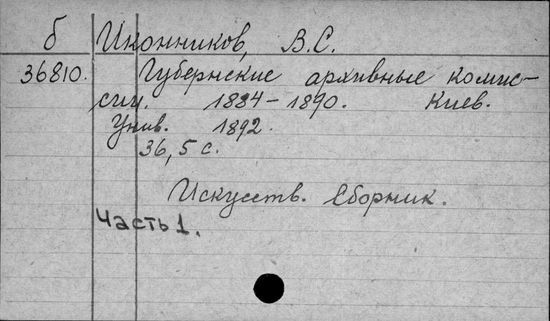 б Иконников, В.С.
36810. Губернские архивные комис-
сии. 1884-1890. Киев.
Унив. 1892.
36, 5 с.
Искусств. Сборник.
Часть 1.